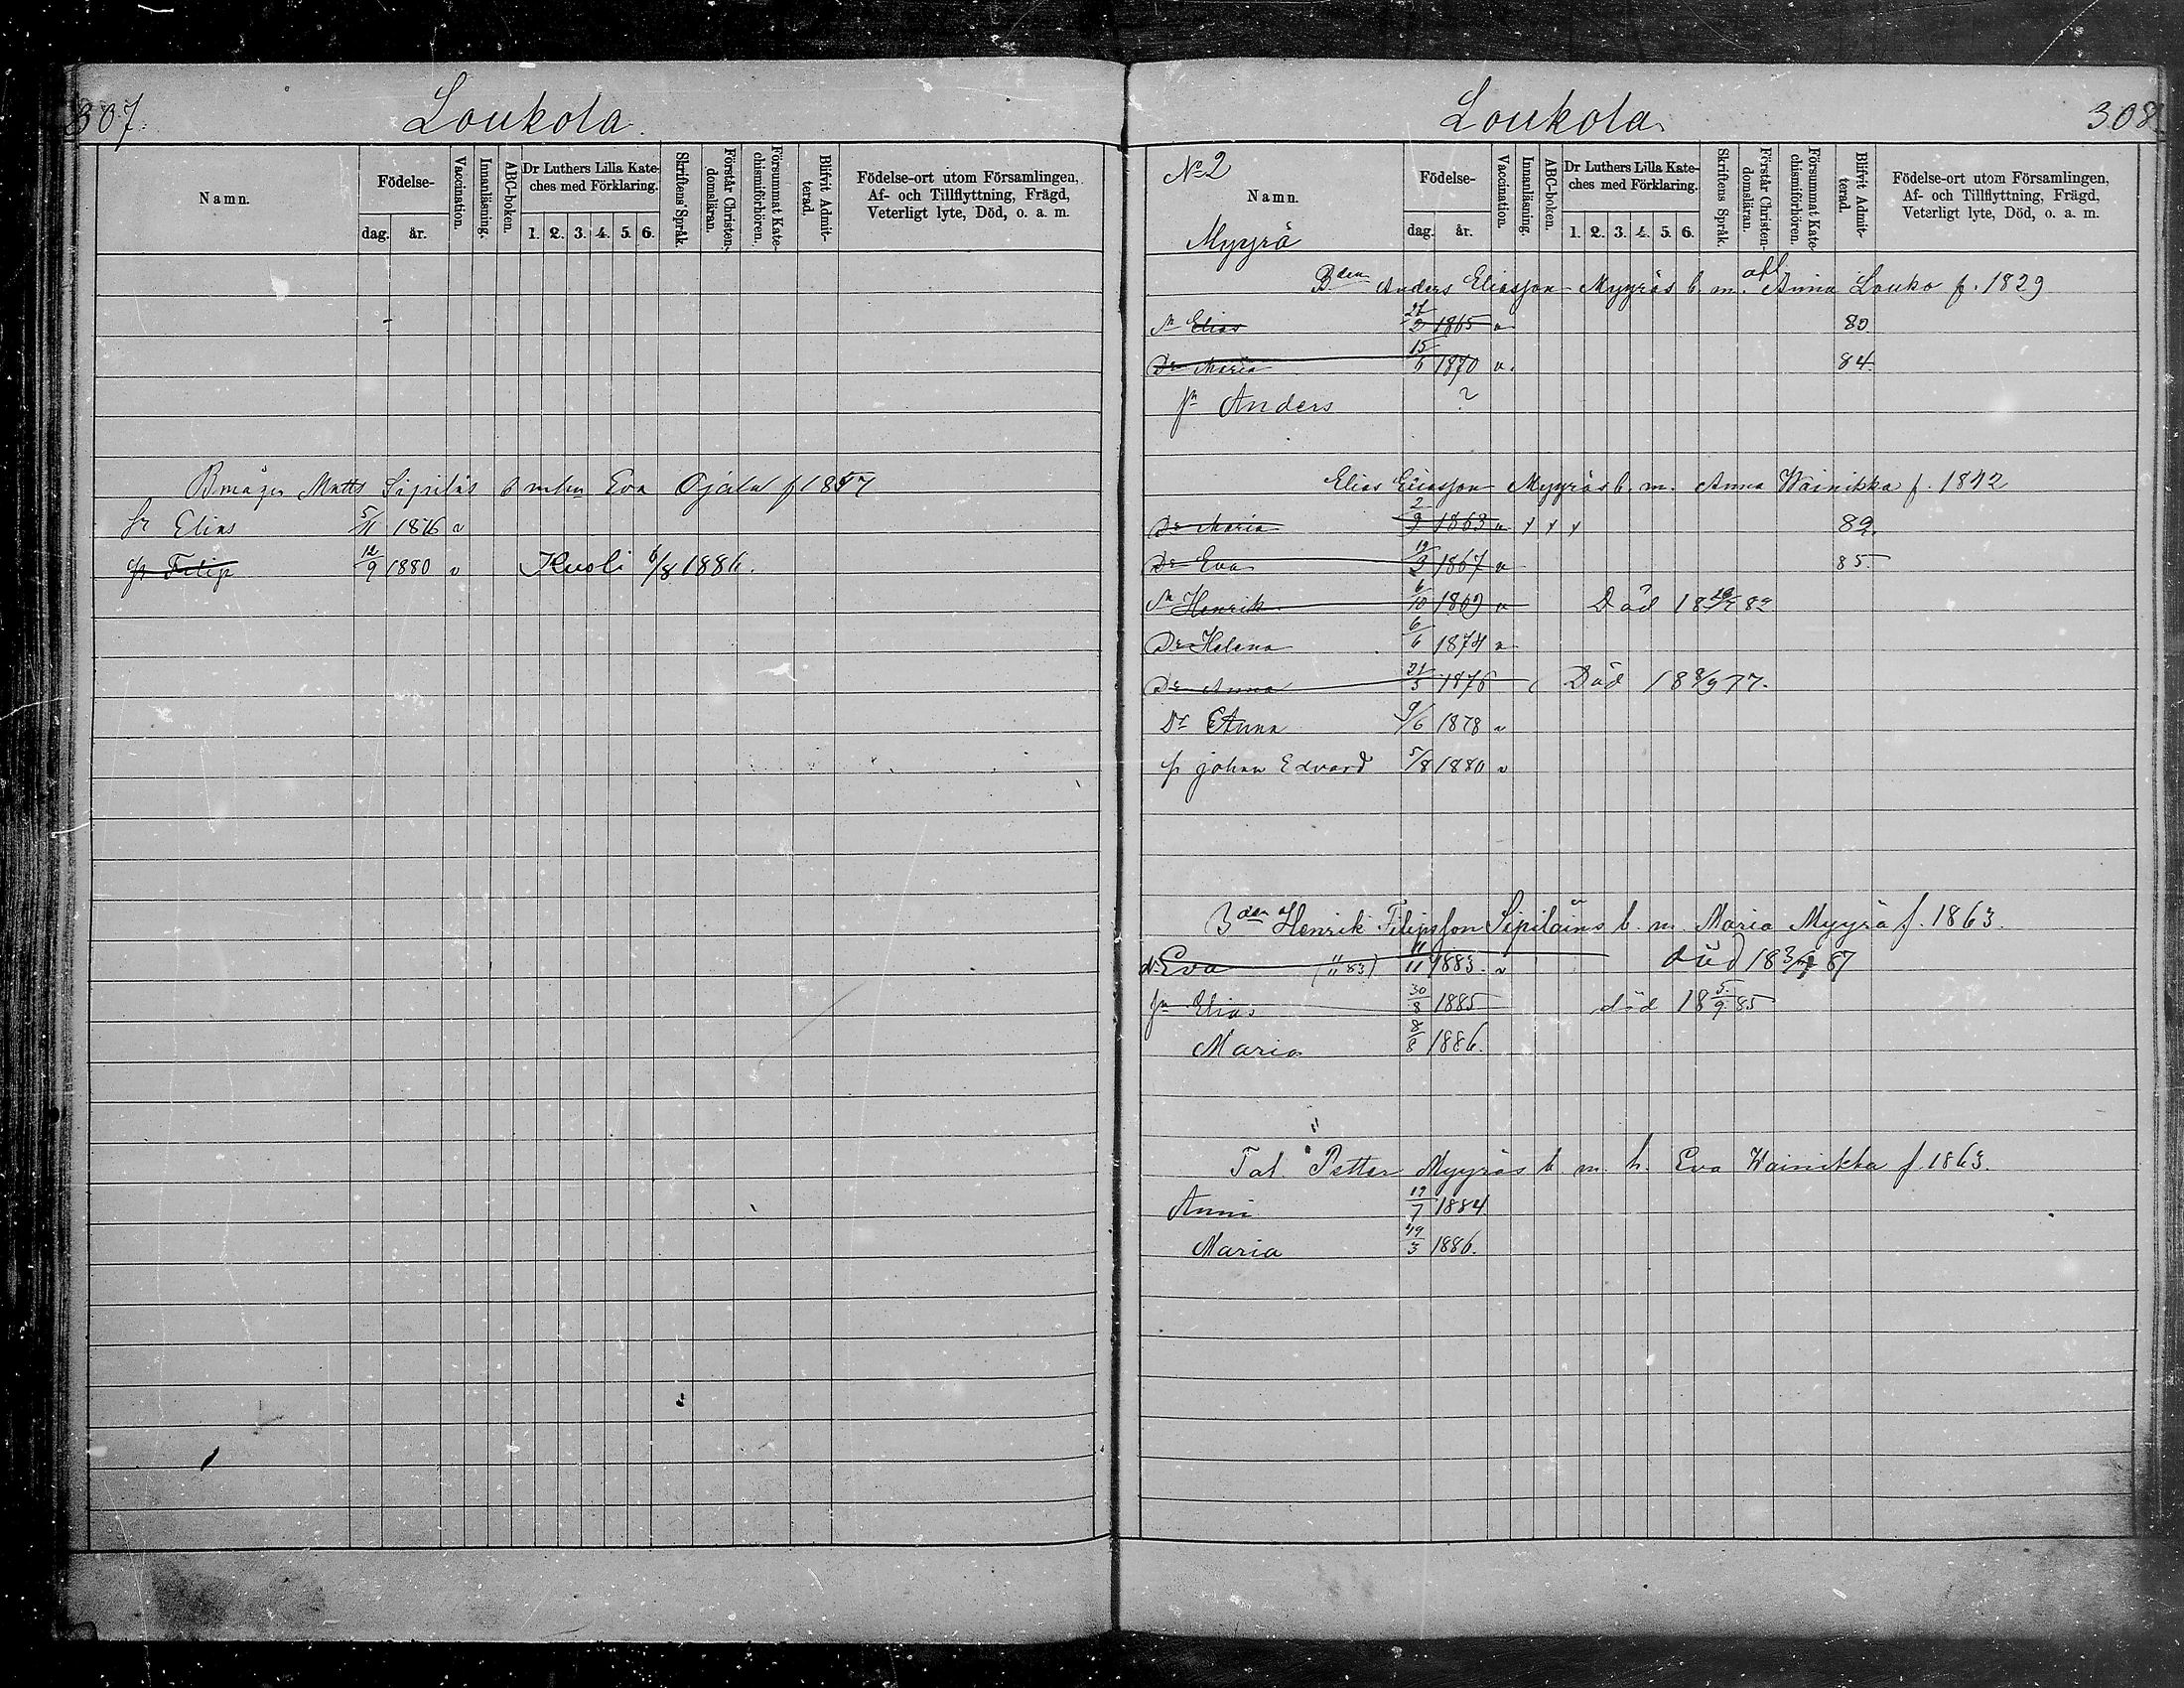 307.
Loukola.
Namn.
Födelse-
dag.
år.
Vaccination.
Innanläsning.
ABC-boken.
Dr Luthers Lilla Kate-
ches med Förklaring.
1. 2. 3. 4. 5. 6.
Skriftens Språk.
Förstår Christen-
domsläran.
Försummat Kate-
chismiförhören.
Blifvit Admit-
terad.
Födelse-ort utom Församlingen,
Af- och Tillflyttning, Frägd,
Veterligt lyte, Död, o. a. m.
Bmågen Matts Sipiläs b m hu Eva Ojala f 1857
sr Elias 5/11 1876 v
sr Filip 12/9 1880 v Kuoli 6/8 1886.
Loukola
308
No 2
Namn.
Myyrä
Födelse-
dag.
år.
Vaccination.
Innanläsning.
ABC-boken.
Dr Luthers Lilla Kate-
ches med Förklaring.
1. 2. 3. 4. 5. 6.
Skriftens Språk.
Förstår Christen-
domsläran.
Försummat Kate-
chismiförhören.
Blifvit Admit-
terad.
Födelse-ort utom Församlingen,
Af- och Tillflyttning, Frägd,
Veterligt lyte, Död, o. a. m.
Bden Anders Eliasson Myyräs b. m. afl Anna Louko f. 1829
Sn Elias 1865 v 80
Dr Maria 15/6 1870 v. 84.
sn Anders ?
Elias Eliasson Myyräs b. m. Anna Wainikka f. 1842
Dr Maria 1863 v x x x
Dr Eva 19/3 1867 v 85
Sn Henrik 6/10 1869 v Död
Dr Helena 6/6 1874 v
Dr Anna 21/5 1876 Död 18 8/9 77.
Dr Anna 9/6 1878 v
sn johan Edvard 5/8 1880 v
Bden Henrik Filipsson Sipiläins b. m. Maria Myyrä f. 1863.
dr Eva 11/11 1883. v död
sn Elias 30/8 1885 död 18 5/9 85
Maria 8/8 1886.
Tal. Petter Myyräs b m. h. Eva Wainikka f. 1863.
Anni 19/7 1884
Maria 19/3 1886.